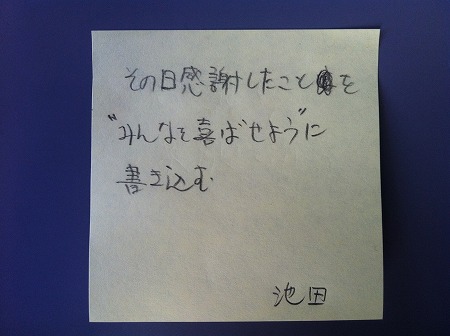 その日感謝したことを
"みんなを喜ばせよう"に
書き込む
池田